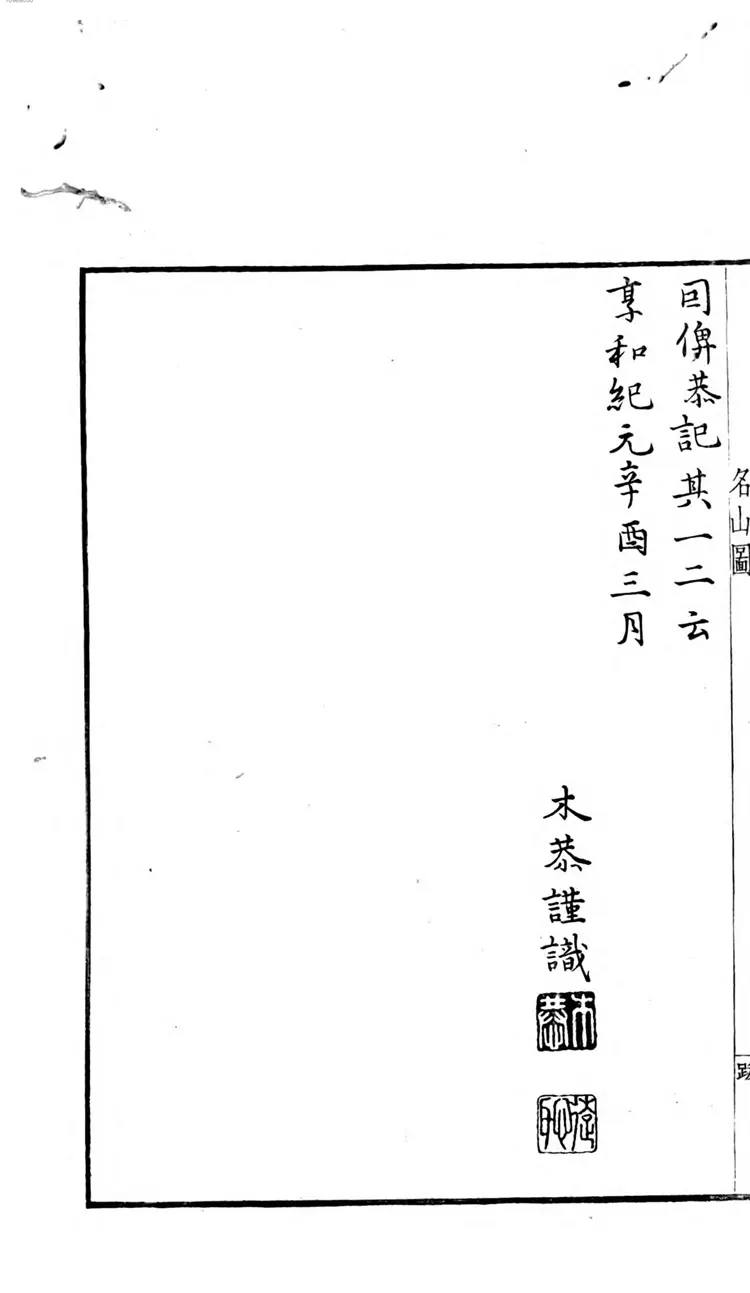 名山圖
跋
囙俾恭記其一二云
享和紀元辛酉三月
木恭謹識
木恭